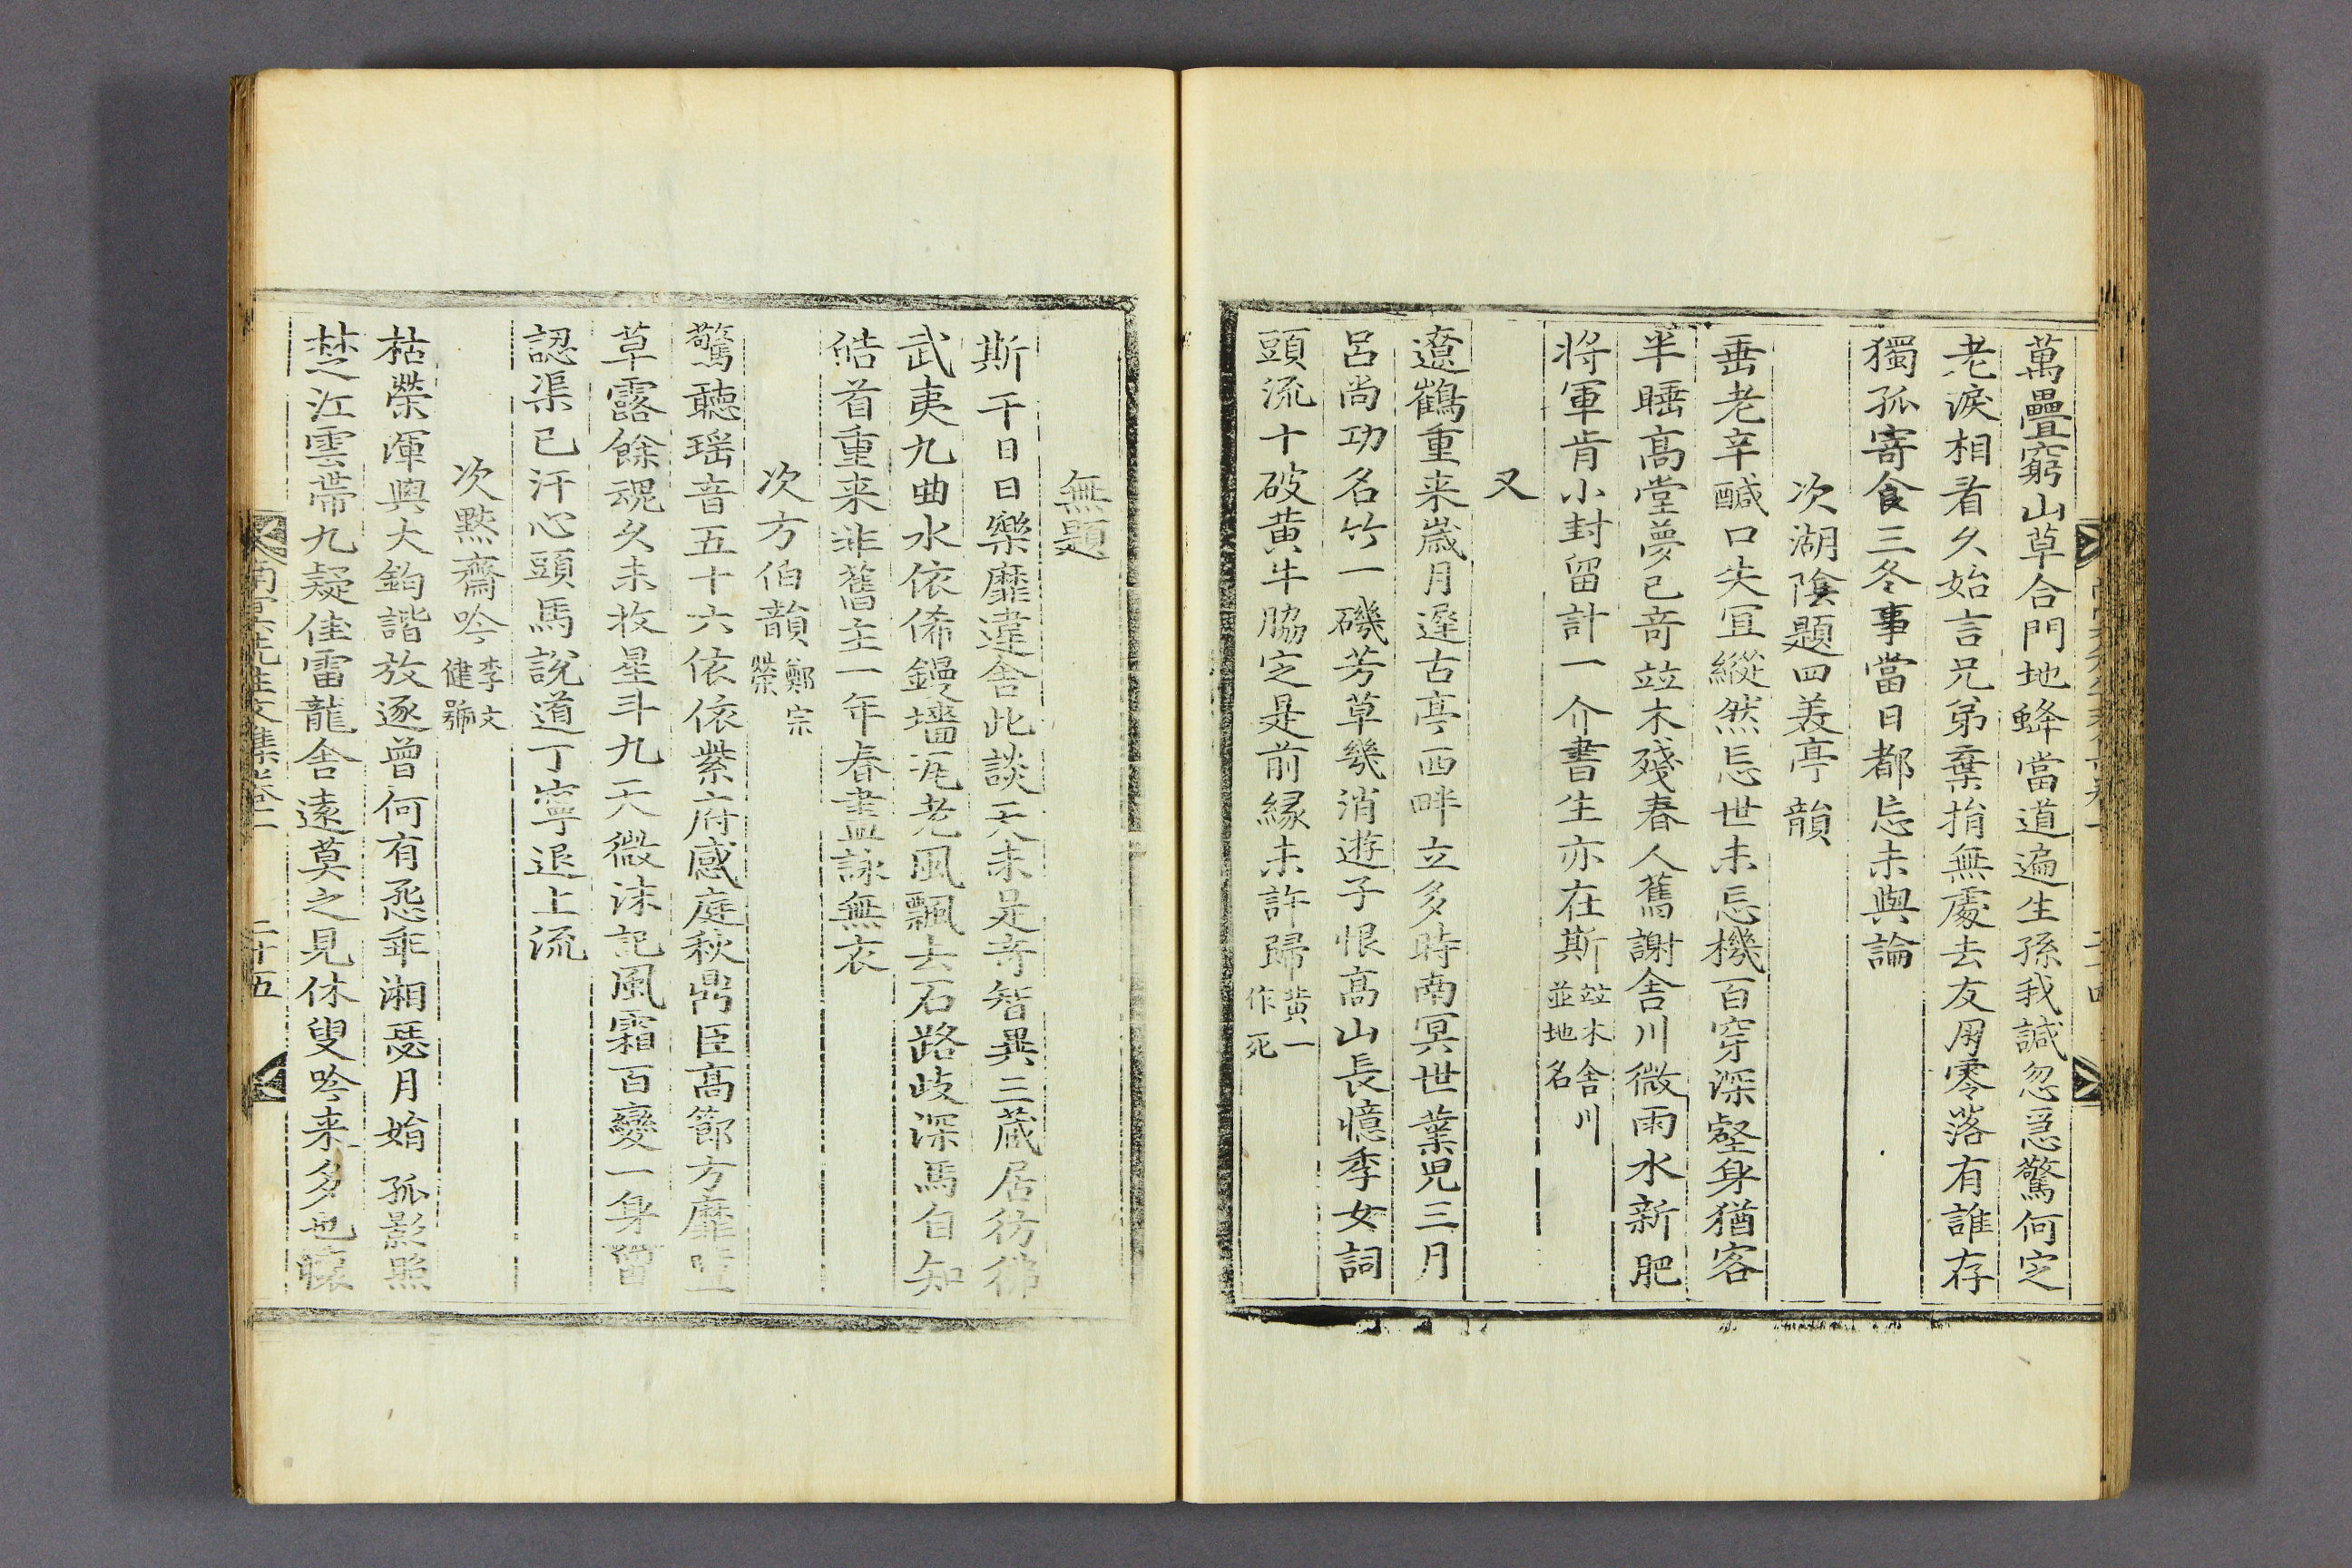 萬疊窮山草合門地蜂當道遍生孫我諴忽惡驚何定
老淚相看久始言兄弟棄捐無處去友朋零落有誰存
獨孤寄食三冬事當日都忘未與論
次湖陰題四美亭韻
垂老辛醎口失宜縱然忘世未忘機百穿深壑身猶客
半睡高堂夢已奇竝木殘春人舊謝舍川微雨水新肥
將軍肯小封留計一介書生亦在斯
竝木舍川
並地名
又
遼鶴重来歲月遲古亭西畔立多時南冥世業兕三月
呂尚功名竹一磯芳草幾消遊子恨高山長憶季女詞
頭流十破黃牛脇定是前緣未許歸
黃一
作死
無題
斯干日日樂靡違舍此談天未是奇智異三蔵居彷彿
武夷九曲水依俙鏝墻瓦老風飄去石路歧深馬自知
皓首重来非舊主一年春盡詠無衣
次方伯韻
鄭宗
榮
驚聽瑤音五十六依依紫府感庭秋鼎臣高節方靡
草露餘魂久未收星斗九天微沫記風霜百變一身留
認渠已汗心頭馬說道丁寧退上流
次默齋吟
李文
健號
枯榮渾與大鈞諧放逐曾何有忢乖湘瑟月娟孤影照
楚江雲帶九疑佳雷龍舍遠莫之見休叟吟来多也懷
南冥先生文集卷二
二十五